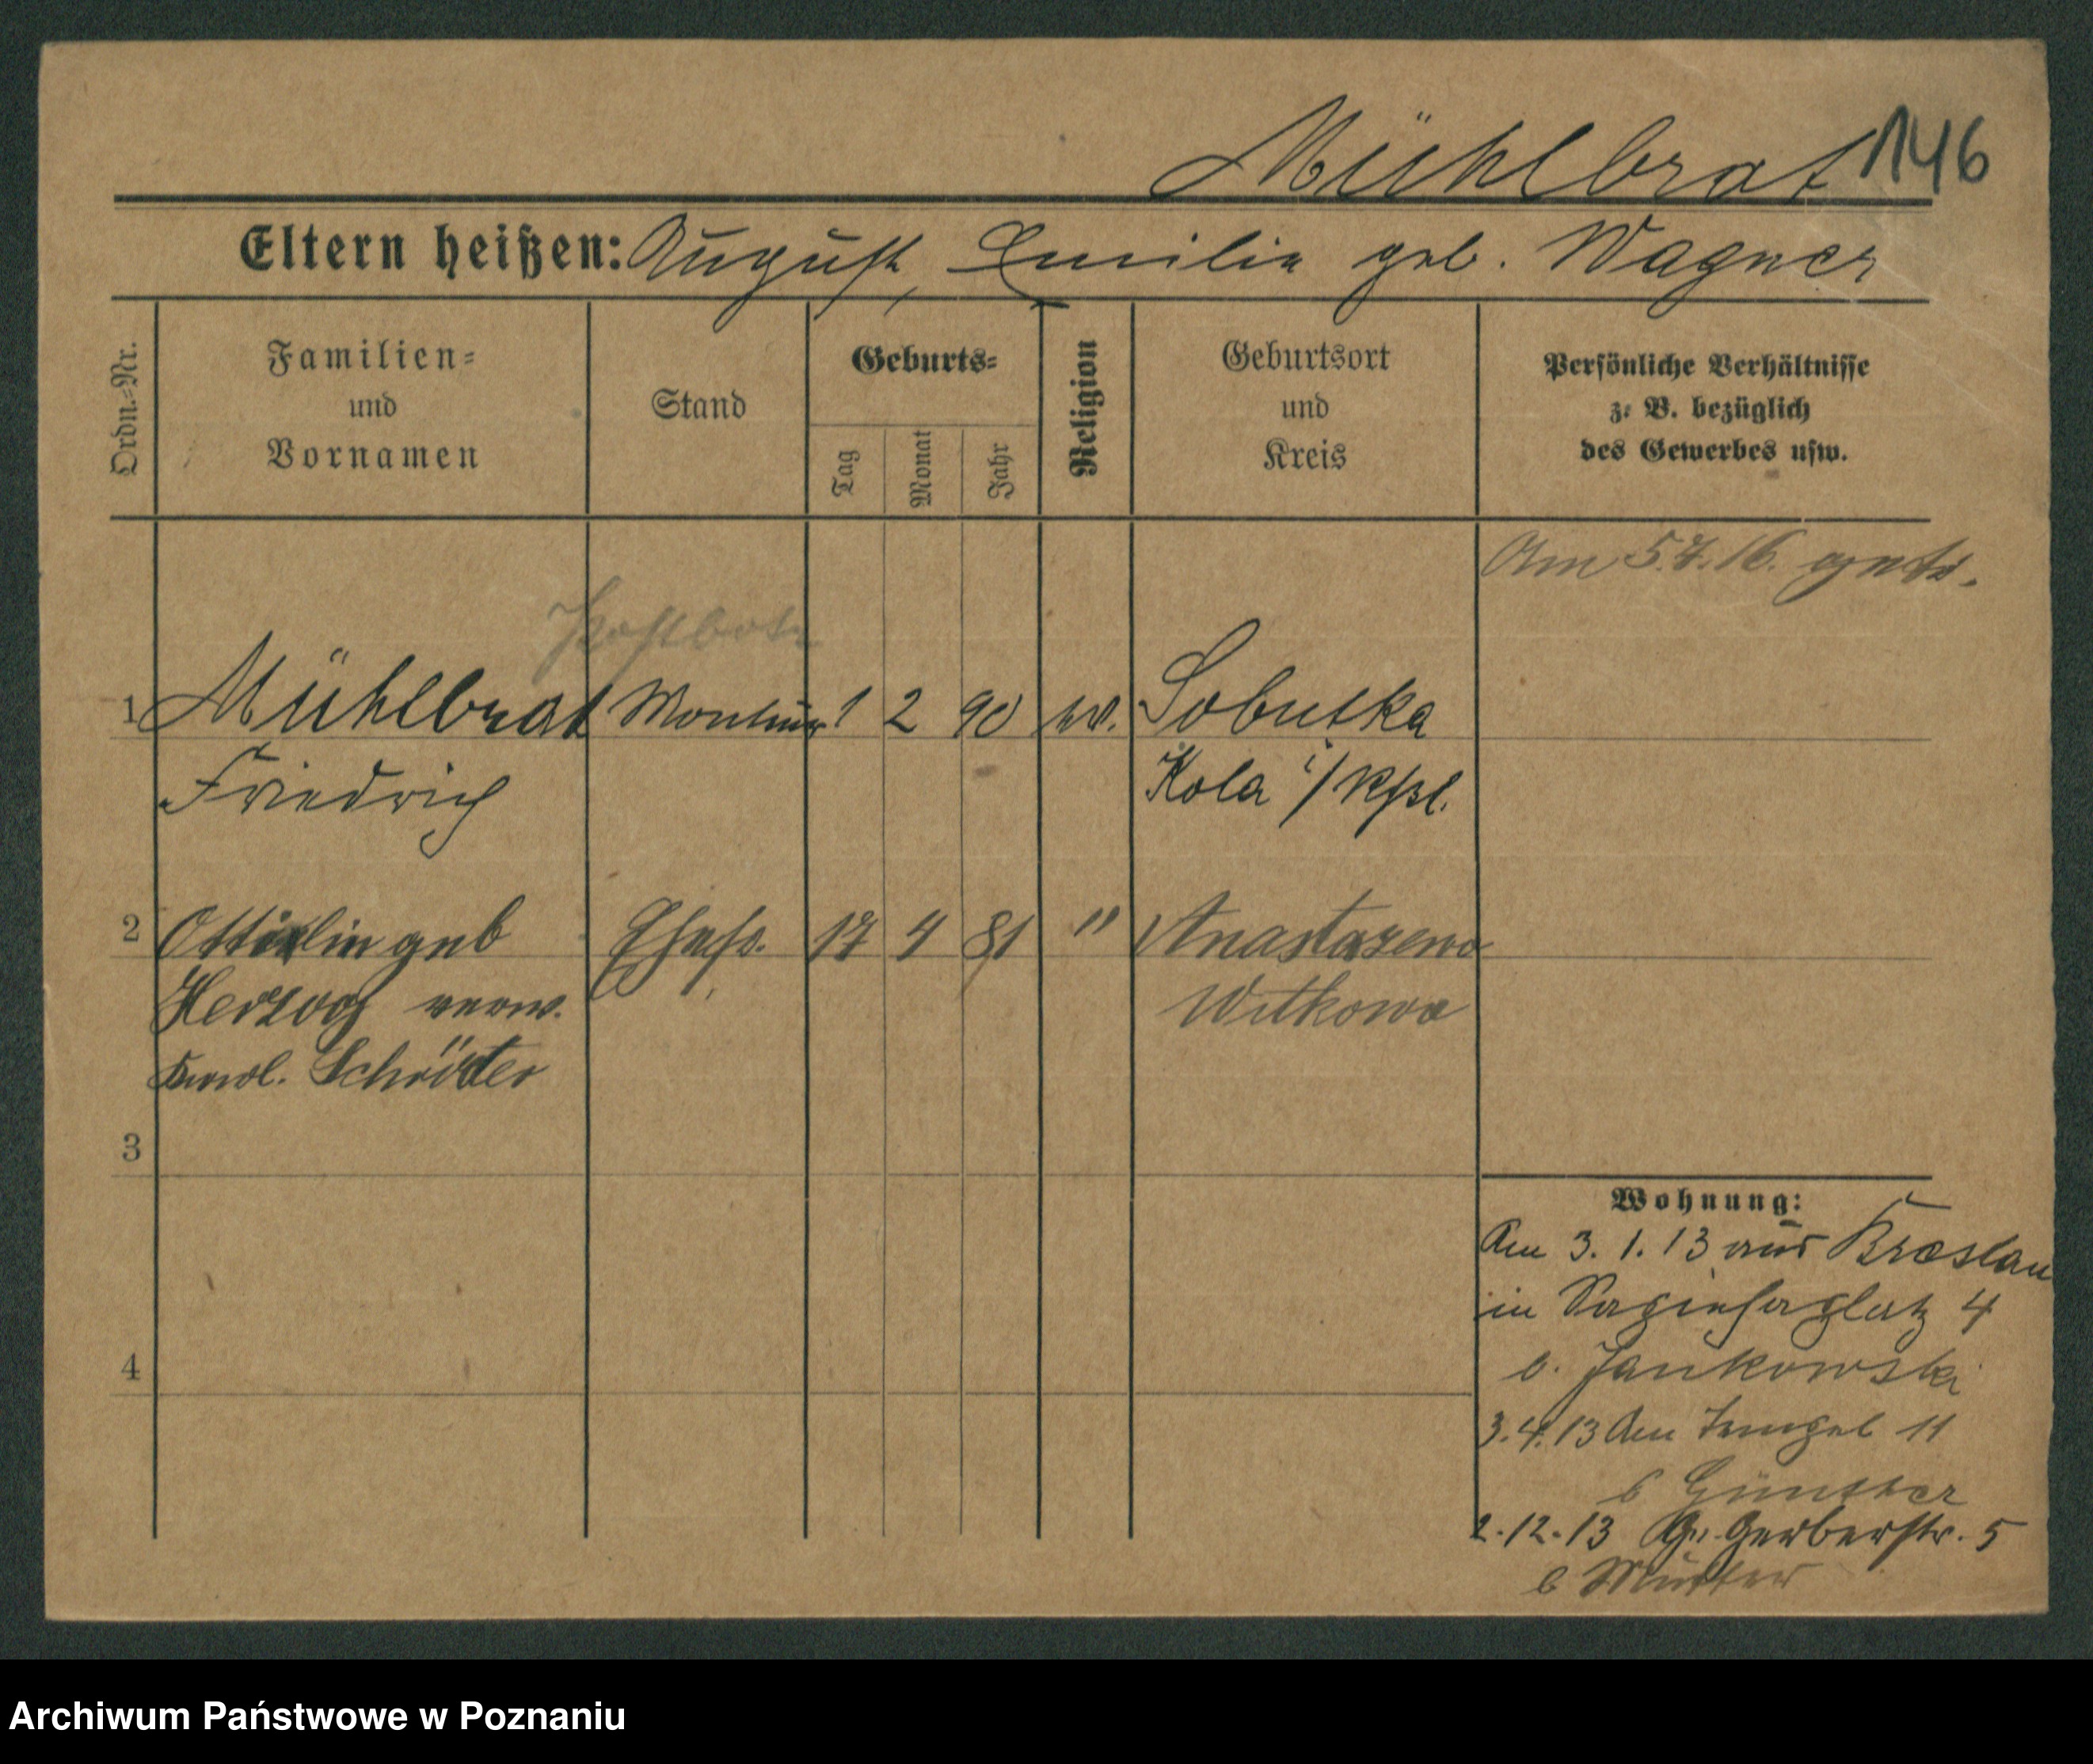 Mühlbrat 146
Eltern heißen: August, Emilie geb. Wagner
Ordn.-Nr.
Familien-
und
Vornamen
Stand
Geburts-
Tag
Monat
Jahr
Religion
Geburtsort
und
Kreis
Persönliche Verhältnisse
z. B. bezüglich
des Gewerbes usw.
Am 5.7.16. getr.
Postbote
1 Mühlbrat Monteur 1 2 90 ev. Sobutka
Friedrich Kola i/ Rßl.
2 Ottilie geb Ehefr. 17 4 81 " Anastazewo
Herzog verw. Witkowo
Schröter
3
Wohnung:
Am 3. 1. 13 aus Breslau
in Sapiehaplatz 4
b. Jankowski
4
3.4.13 Am Tempel 11
b Günther
2.12.13 Gr. Gerberstr. 5
b Mutter
Archiwum Państwowe w Poznaniu